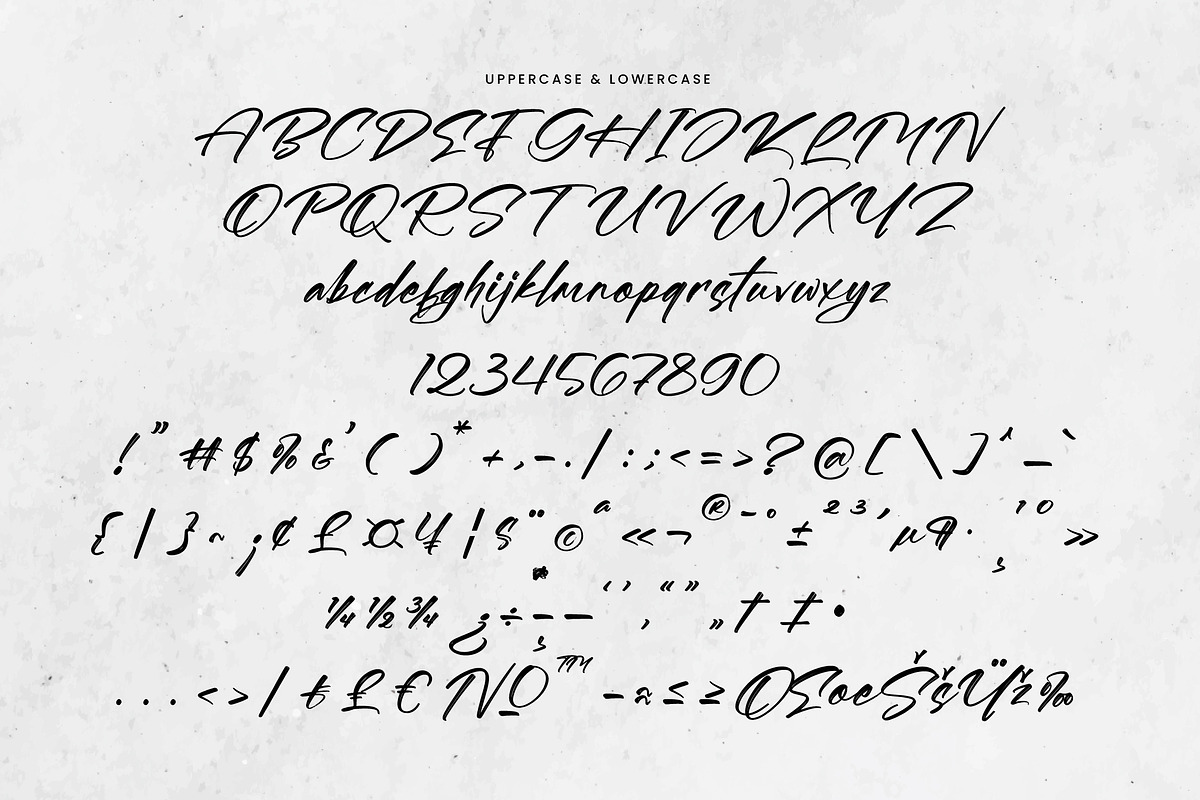 UPPERCASE & LOWERCASE
ABCDEFGHIJKLMN
OPQRSTUVWXYZ
abcdefghijklmnopqrstuvwxyz
1234567890
!"#$%&'()*+,-./:;<=>?@[\]^_`
{|}~¡¢£¤¥¦§¨©ª«¬®¯°±²³´µ¶·¸¹⁰»
¼½¾¿÷–—‘’‚“”„†‡•
...<>/₺£€№™−≈≤≥ŒœŠšŸž‰